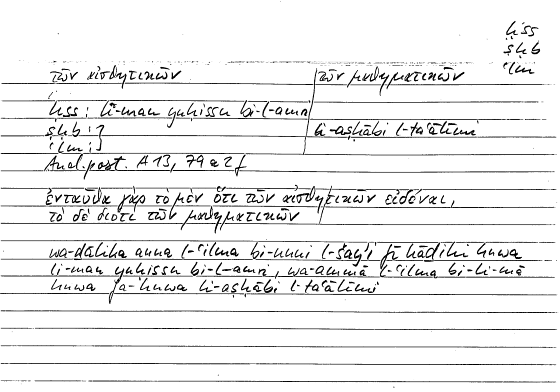 ḥss
ṣḥb
ʿlm
τῶν αἰσθητικῶν
τῶν μαθηματικῶν
ḥss : li-man yuḥissu bi-l-amri
ṣḥb : ?
li-aṣḥābi l-taʿālīmi
ʿlm :
Anal. post. A 13, 79 a 2 f
ἐνταῦθα γὰρ τὸ μὲν ὅτι τῶν αἰσθητικῶν εἰδέναι,
τὸ δὲ διότι τῶν μαθηματικῶν
wa-ḏālika anna l-ʿilma bi-anni l-šayʾi fī hāḏihi huwa
li-man yuḥissu bi-l-amri, wa-ammā l-ʿilma bi-li-mā
huwa fa-huwa li-aṣḥābi l-taʿālīmi